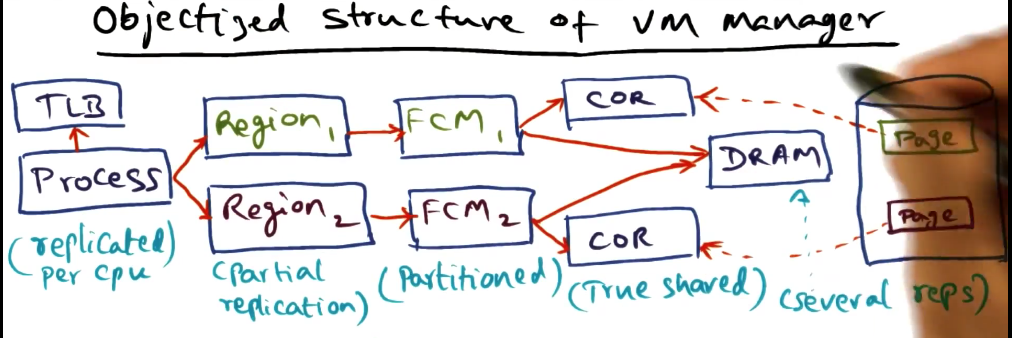 Objectized structure of VM manager
TLB
Process
(replicated)
per cpu
Region1
Region2
(Partial
replication)
FCM1
FCM2
(Partitioned)
COR
COR
(True shared)
DRAM
(several reps)
Page
Page